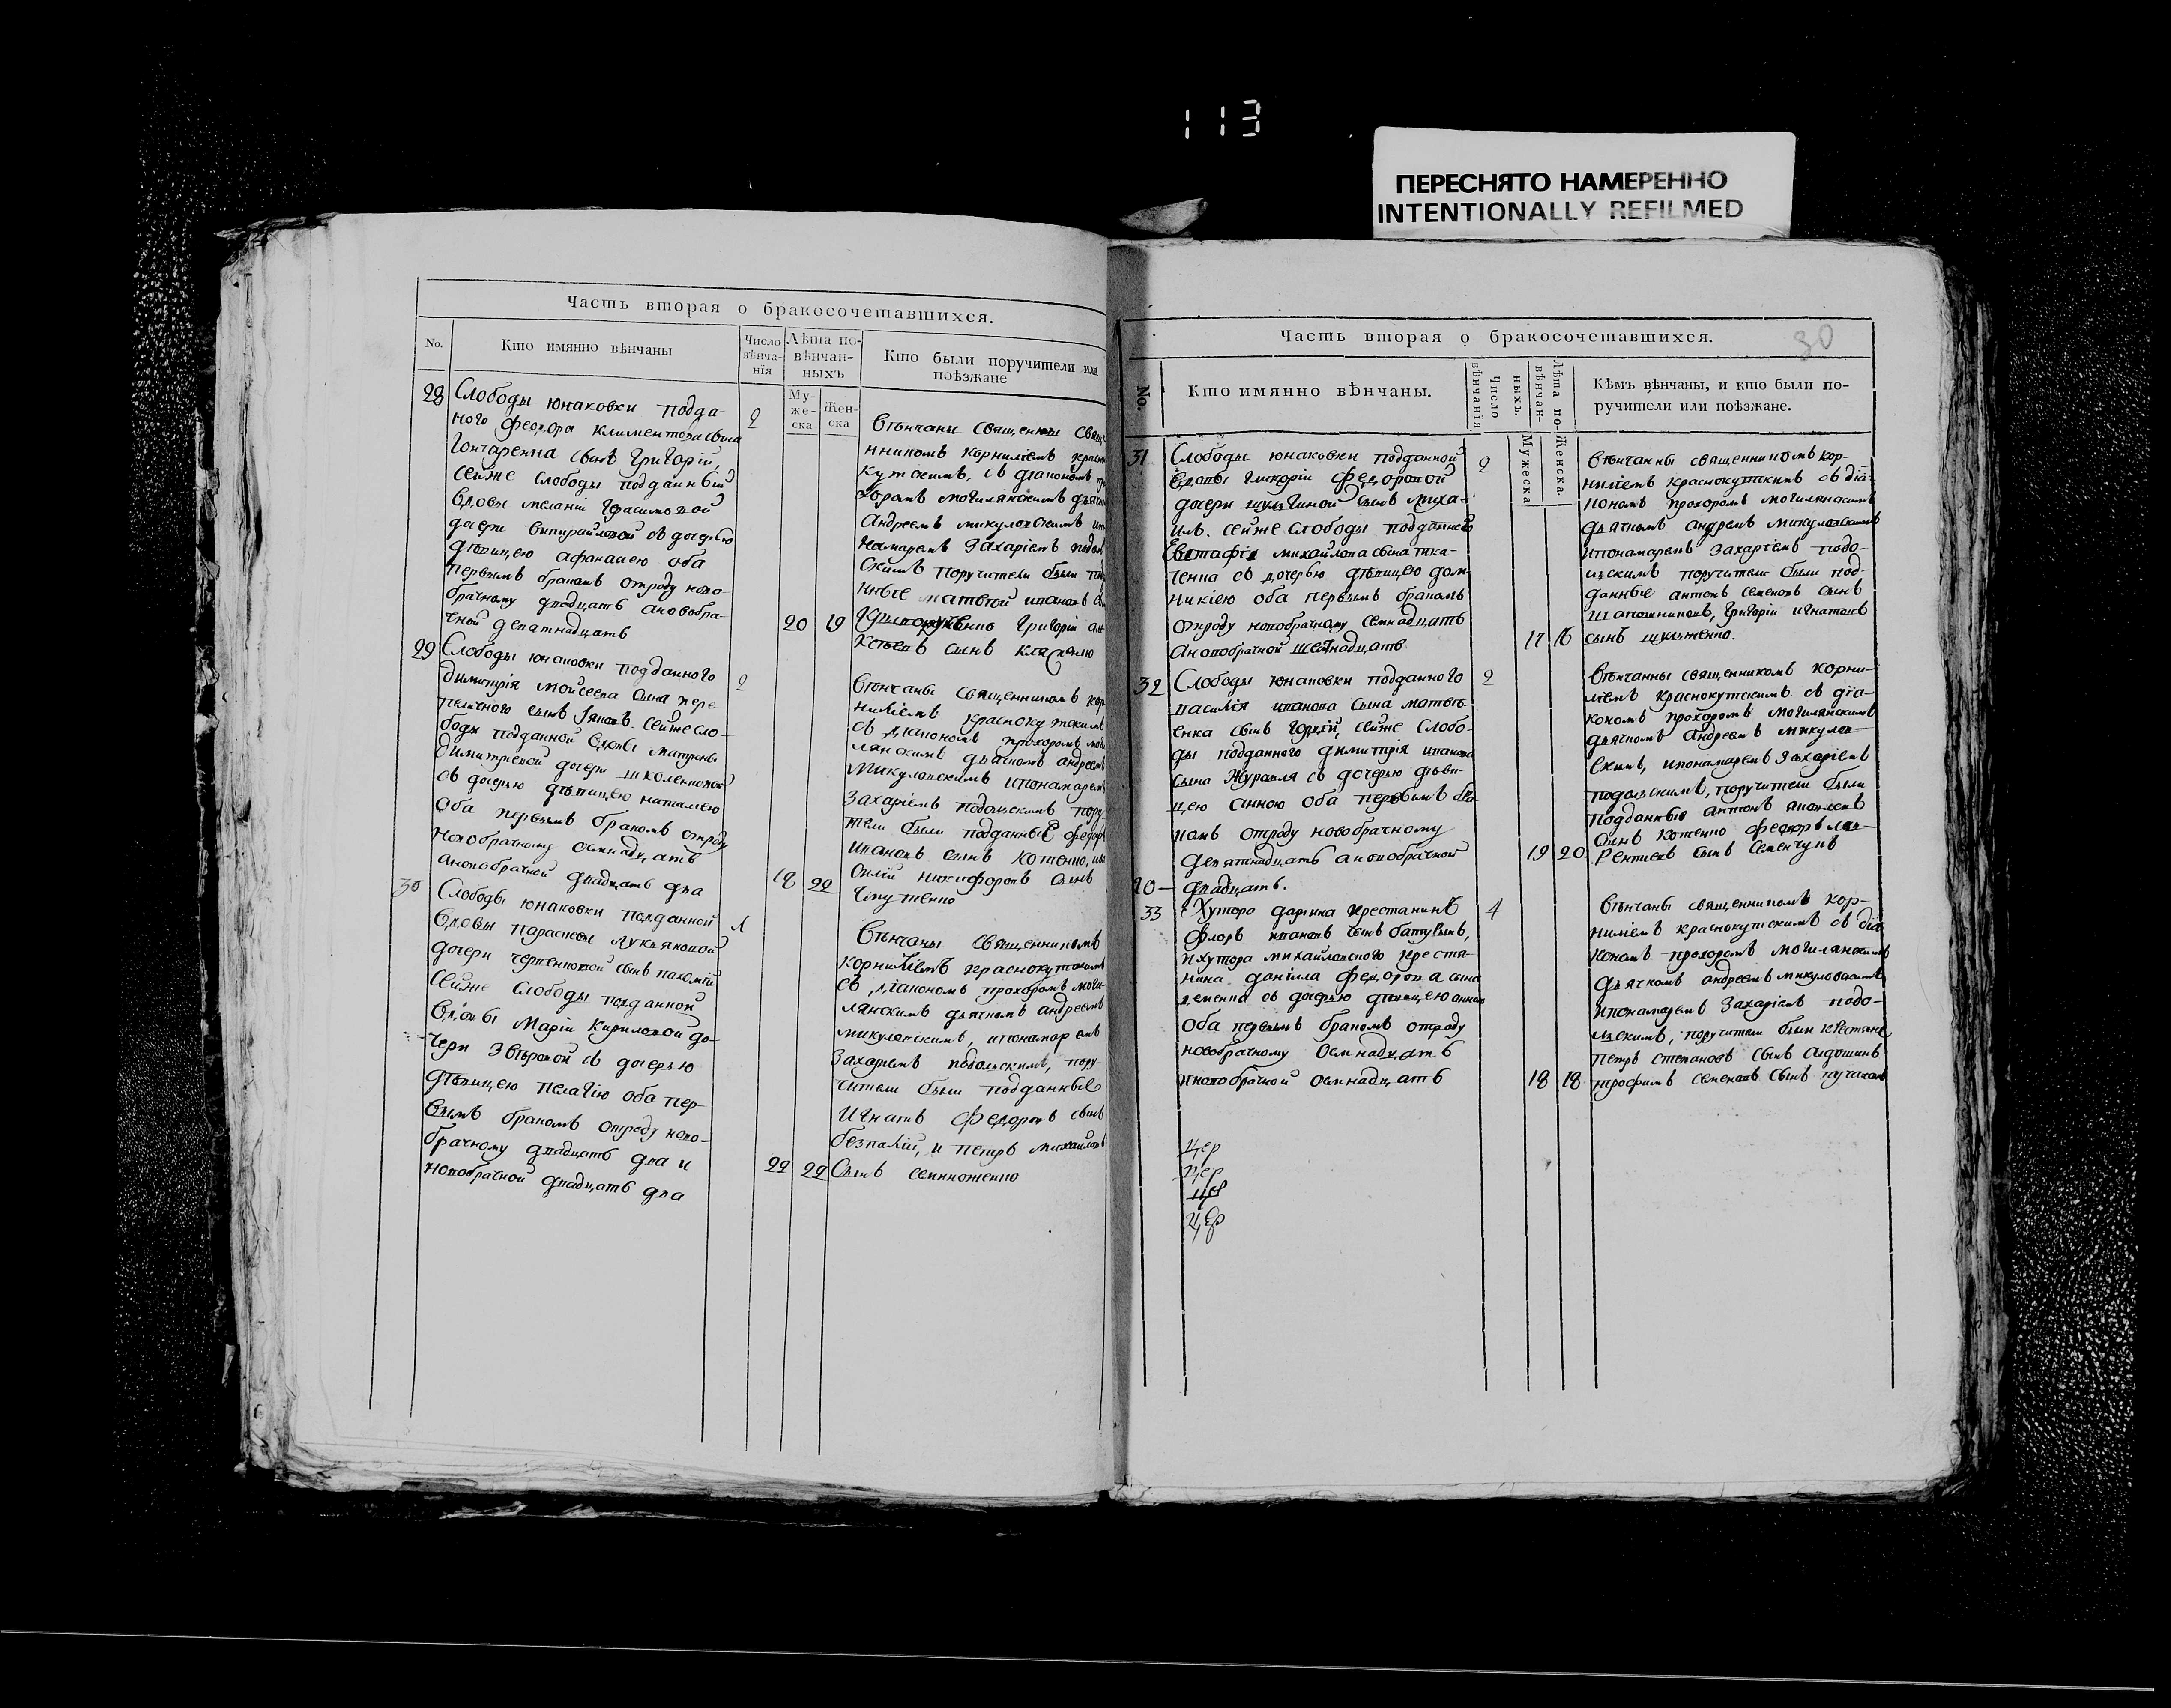 113
ПЕРЕСНЯТО НАМЕРЕННО
INTENTIONALLY REFILMED
Часть вторая о бракосочетавшихся.
No.
Кто имянно вѣнчаны
Число вѣнча-нія
Лѣта по-вѣнчан-ныхъ
Му-же-ска
Жен-ска
Кто были поручители или поѣзжане
28
Слободы юнаковки подда-
ного феодора климентова сына
Гончаренка сынъ Григорій,
сейже слободы подданной
вдовы меланіи Герасимовой
дочери съ дочерью
дѣвицею афанасіею оба
первымъ бракомъ отроду ново-
брачному двадцать ановобра-
чной девятнадцать
2
20 19
Вѣнчаны священны свящ
нникомъ корниліемъ красно
кутскимъ, съ діакономъ про
хоромъ могилянскимъ дьячк
андреемъ микуловскимъ ип
номаремъ Захаріемъ подол
скимъ поручители были под
нные матвей ивановъ сы
Григорій але
ксѣевъ сынъ
29
Слободы юнаковки подданного
димитрія мойсеева сына пере
пеличного сынъ Іяковъ. сейже сло-
боды подданной вдовы матроны
димитріевой дочери школенковой
съ дочерью дѣвицею наталіею
оба первымъ бракомъ отроду
новобрачному осмнадцать
ановобрачной двадцать два
2
18 22
Вѣнчаны священникомъ кор
ниліемъ краснокутскимъ
съ діакономъ прохоромъ моги
лянскимъ дьячкомъ андреемъ
микуловскимъ ипономаремъ
Захаріемъ подольскимъ пору
тели были подданные федоръ
ивановъ сынъ котенко, ива
силій никифоровъ сынъ
30
Слободы юнаковки подданной
вдовы параскевы лукьяновой
дочери чертенковой сынъ пахомій
сейже слободы подданной
вдовы Маріи Кириловой до-
чери Звѣровой съ дочерью
дѣвицею пелагіею оба пер-
вымъ бракомъ отроду ново-
брачному двадцать два и
новобрачной двадцать два
22 22
Вѣнчаны священникомъ
корниліемъ краснокутскимъ
съ діакономъ прохоромъ моги-
лянскимъ дьячкомъ андреемъ
микуловскимъ, ипономаремъ
Захаріемъ подольскимъ, пору-
чители были подданные
Игнатъ Федоровъ сынъ
безпалій, и петръ михайловъ
сынъ семиноженко
Часть вторая о бракосочетавшихся.
30
No.
Кто имянно вѣнчаны.
Число вѣнчанія
Лѣта по-вѣнчан-ныхъ.
Мужеска
Женска.
Кѣмъ вѣнчаны, и кто были по-
ручители или поѣзжане.
31
Слободы юнаковки подданной
вдовы гликеріи Федоровой
дочери шулгиной сынъ миха-
илъ. сейже слободы подданного
Евстафія михайлова сына тка-
ченка съ дочерью дѣвицею дом-
никіею оба первымъ бракомъ
отроду новобрачному семнадцать
ановобрачной шестнадцать
2
17 16
Вѣнчанны священникомъ кор-
ниліемъ краснокутскимъ съ діа-
кономъ прохоромъ могилянскимъ
дьячкомъ андреемъ микуловскимъ
ипономаремъ Захаріемъ подо-
льскимъ поручители были под-
данные антонъ семеновъ сынъ
шаповниковъ, Григорій игнатовъ
сынъ шульженко.
32
Слободы юнаковки подданного
василія иванова сына матвѣе-
енка сынъ Гордій, сейже слобо-
ды подданного димитрія иванова
сына Журавля съ дочерью дѣви-
цею анною оба первымъ бра-
комъ отроду новобрачному
девятнадцать ановобрачной
двадцать.
2
19 20
Вѣнчанны священникомъ корни-
ліемъ краснокутскимъ съ діа-
кономъ прохоромъ могилянскимъ
дьячкомъ андреемъ микулов-
скимъ, ипономаремъ Захаріемъ
подольскимъ, поручители были
подданные антонъ яковлевъ
сынъ котенко федоръ лав-
рентиевъ сынъ семенчукъ
20 —
33
Хутора даріина крестанинъ
флоръ ивановъ сынъ батуринъ,
ихутора михайловского креста-
нина даніила федорова сына
деменка съ дочерью дѣвицею анною
оба первымъ бракомъ отроду
новобрачному осмнадцать
иновобрачной осмнадцать
4
18 18
Вѣнчаны священникомъ кор-
ниліемъ краснокутскимъ съ діа
кономъ прохоромъ могилянскимъ
дьячкомъ андреемъ микуловскимъ
ипономаремъ Захаріемъ подо-
льскимъ, поручители были крестьяне
петръ степановъ сынъ
трофимъ семеновъ сынъ
цер
цер
цер
цер